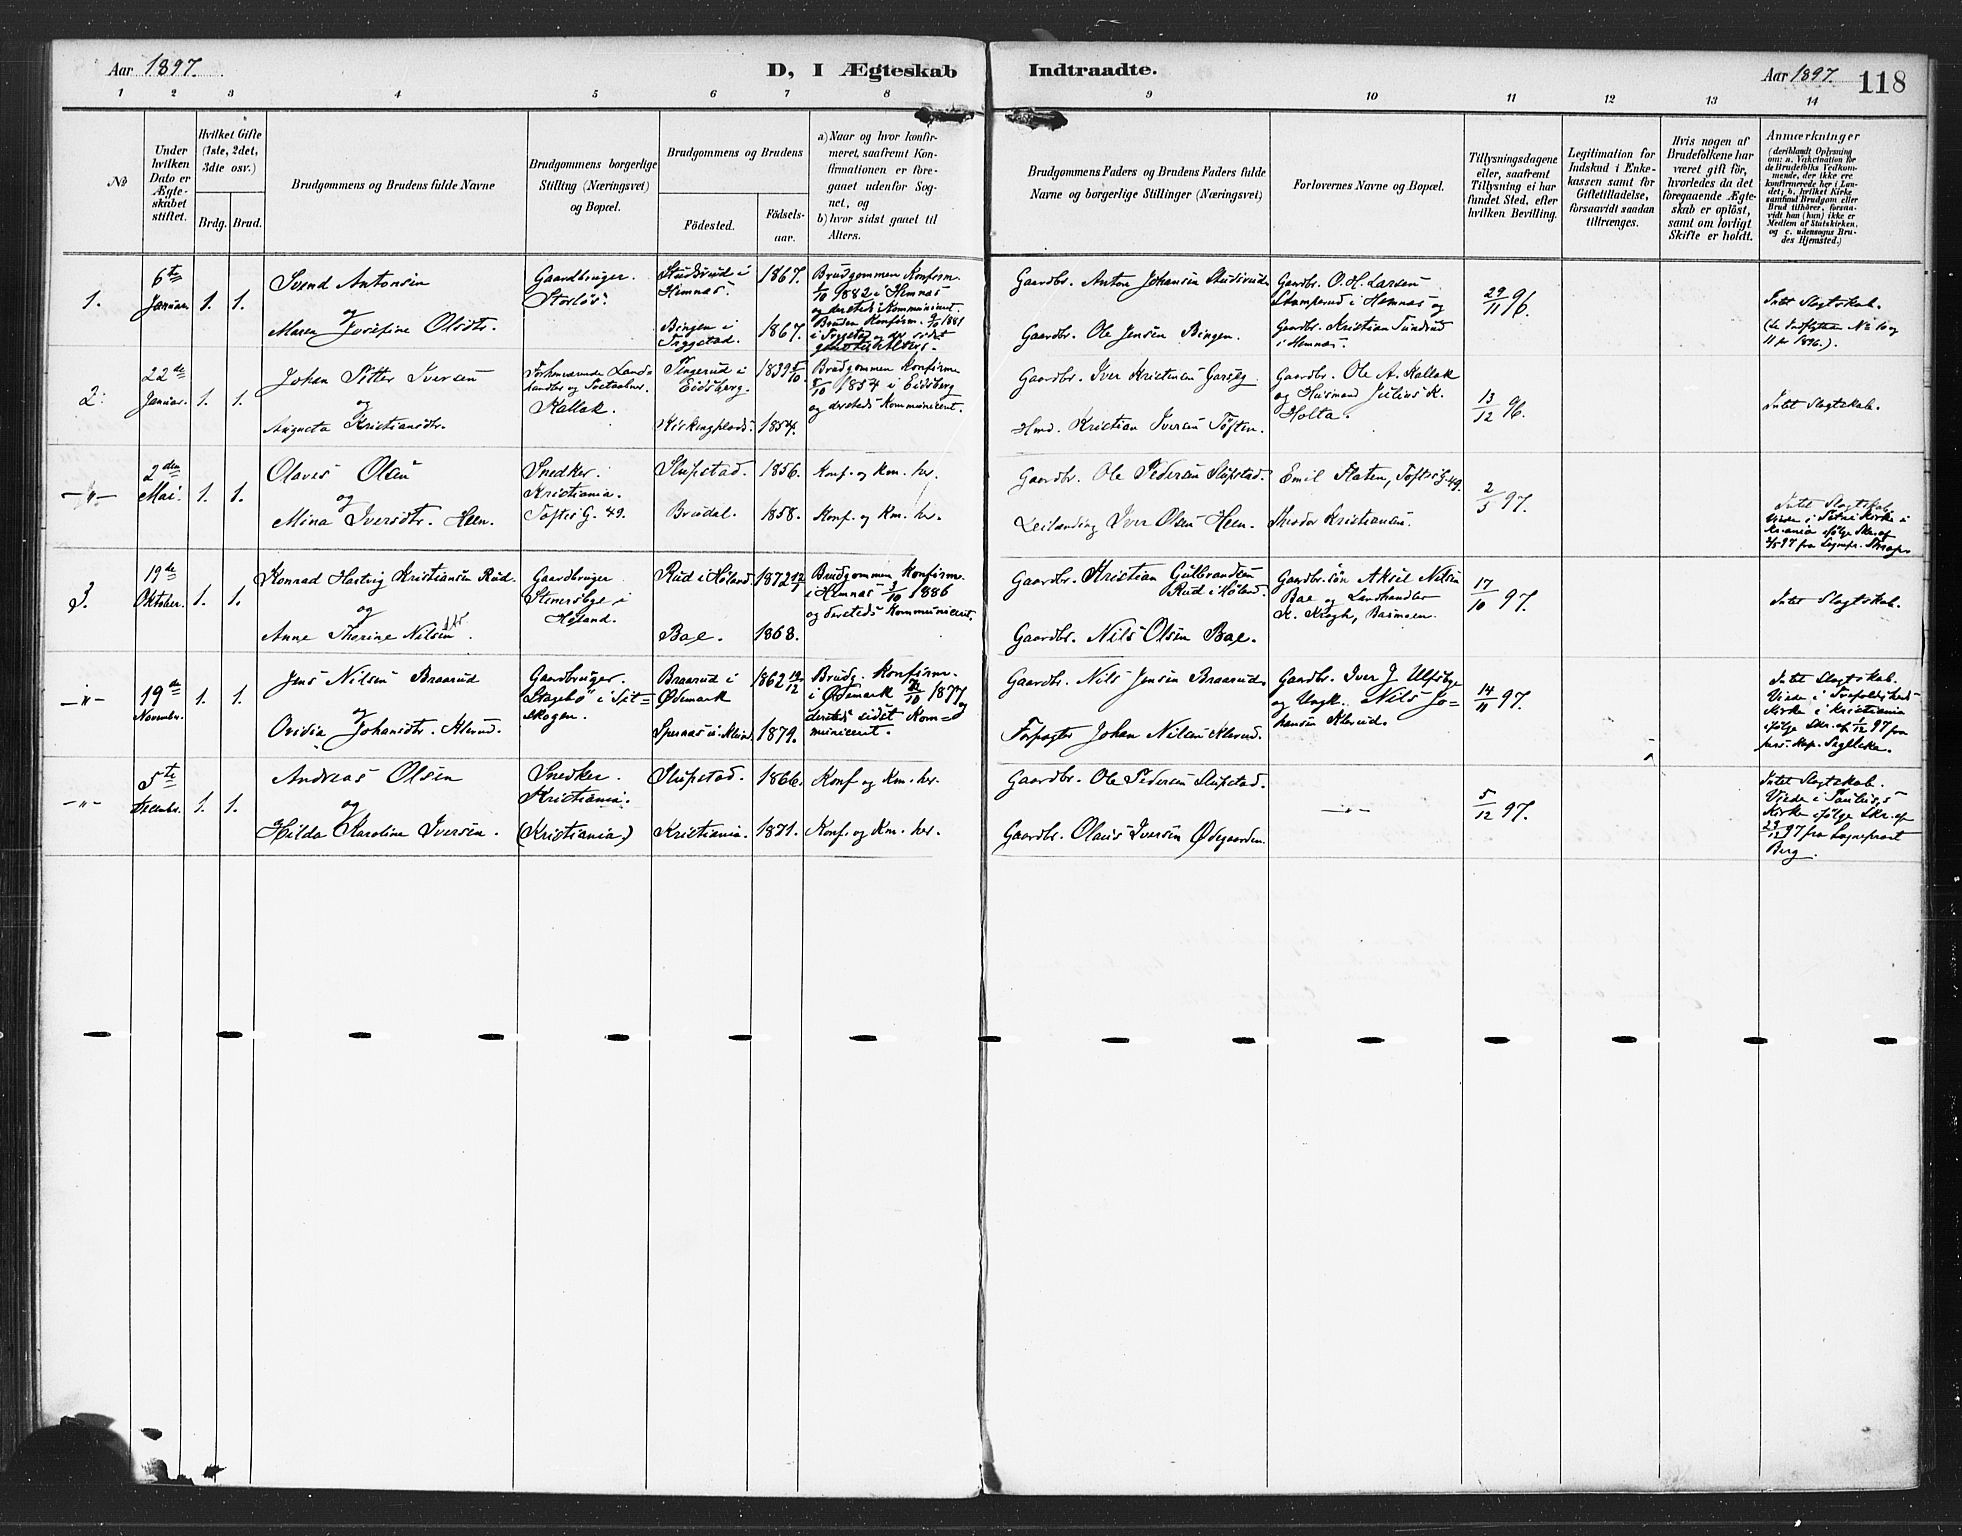 Aar 1897.
D, I Ægteskab Indtraadte.
Aar 1897. 118
1 2 3 4 5 6 7 8 9 10 11 12 13 14
No
Under hvilken Dato er Ægteskabet stiftet.
Hvilket Gifte (1ste, 2det, 3dte osv.)
Brdg. Brud.
Brudgommens og Brudens fulde Navne
Brudgommens borgerlige Stilling (Næringsvei) og Bopæl.
Brudgommens og Brudens
Födested.
Födsels-aar.
a) Naar og hvor konfirmeret, saafremt Konfirmationen er foregaaet udenför Sognet, og
b) hvor sidst gaaet til Alters.
Brudgommens Faders og Brudens Faders fulde Navne og borgerlige Stillinger (Næringsvei)
Forlovernes Navne og Bopæl.
Tillysningsdagene eller, saafremt Tillysning ei har fundet Sted, efter hvilken Bevilling.
Legitimation for Indskud i Enkekassen samt for Giftetilladelse, forsaavidt saadan tiltrænges.
Hvis nogen af Brudefolkene har været gift för, hvorledes da det foregaaende Ægteskab er oplöst, samt om lovligt Skifte er holdt.
Anmærkninger
(deriblandt Oplysning om: a. Vakcination for de Brudefolks Vedkommende, der ikke ere konfirmerede her i Landet; b. hvilket Kirkesamfund Brudgom eller Brud tilhörer, forsaavidt han (hun) ikke er Medlem af Statskirken, og c. udensogns Brudes Hjemsted.)
1. 6te Januar. 1. 1.
Svend Antonsen
og
Maren Josefine Olsdtr.
Gaardbruger.
Studsrud i Hemnæs.
1867.
Bingen i Tryggestad.
1867.
Brudgommen konfirm.
1/10 1882 i Hemnæs
og dersteds kommuniceret.
Bruden konfirm.
Gaardbr. Anton Johansen Studsrud
Gaardbr. Ole Jensen Bingen.
Gaardbr. O. H. Larsen
i Hemnæs og
Gaardbr. Kristian
i Hemnæs.
29/11 96.
Intet Slægtskab.
2. 22de Januar. 1. 1.
Johan Petter Iversen
og
Augusta Kristiansdtr.
Kallak.
Tingerud i Eidsberg.
1839
1854.
Brudgommen konfirm.
1854 i Eidsberg
og dersteds kommuniceret.
Gaardbr. Iver Kristensen
Hmd. Kristian Iversen Toften.
Gaardbr. Ole A. Kallak
og Husmand Julius K.
Holta.
13/12 96.
Intet Slægtskab.
—"— 2den Mai. 1. 1.
Olaves Olsen
og
Mina Iversdtr. Heen.
Snedker.
Kristiania.
Toftes G. 49.
Slupstad. 1856.
Bredal. 1858.
Konf. og Km. her.
Konf. og Km. her.
Gaardbr. Ole Pedersen Slupstad.
Leilænding Iver Olsen Heen.
Emil Flaten, Toftes G. 49.
Theodor Kristiansen.
2/5 97.
Intet Slægtskab.
Viede i Petri Kirke i
Kr.ania ifölge Skr. af
2/5 97 fra Sognepr.
3. 19de Oktober. 1. 1.
Konrad Hartvig Kristiansen Rud.
og
Anne Therine Nilsen
Gaardbruger
Stenersbye i
Høland.
Rud i Høland. 1872
Bae. 1868.
Brudgommen konfirm.
i Hemnæs 3/10 1886
og dersteds kommuniceret.
Gaardbr. Kristian Gulbrandsen
Rud i Høland.
Gaardbr. Nils Olsen Bae.
Gaardbr. sön Aksel Nilsen
Bae og Landhandler
K. Krogh, Basmoen.
17/10 97.
Intet Slægtskab.
—"— 19de November. 1. 1.
Jens Nilsen Braarud
og
Ovidia Johansdtr. Klerud.
Gaardbruger.
Stagebö i Set=
skogen.
Braarud i
Ødemark
1862
1879.
Brudg. konfirm.
i Ødemark 1877 og
dersteds sidst kom=
municeret.
Gaardbr. Nils Jensen Braarud.
Forpagter Johan Nilsen Klerud.
Gaardbr. Iver J. Ulfsbye
og Ungk. Nils Jo=
hansen Klerud.
14/11 97.
Intet Slægtskab.
Viede i Trefoldigheds=
Kirke i Kristiania
ifölge Skr. af 1/12 97 fra
pers. Kap.
—"— 5te December. 1. 1.
Andreas Olsen
og
Hilda Karoline Iversen.
Snedker.
Kristiania.
(Kristiania)
Slupstad. 1866.
Kristiania. 1871.
Konf. og Km. her.
Konf. og Km. her.
Gaardbr. Ole Pedersen Slupstad.
Gaardbr. Olaus Iversen Ødegaarden.
—"—
5/12 97.
Intet Slægtskab.
Viede i Paulus's
Kirke ifölge Skr. af
23/12 97 fra Sogneprest
Berg.